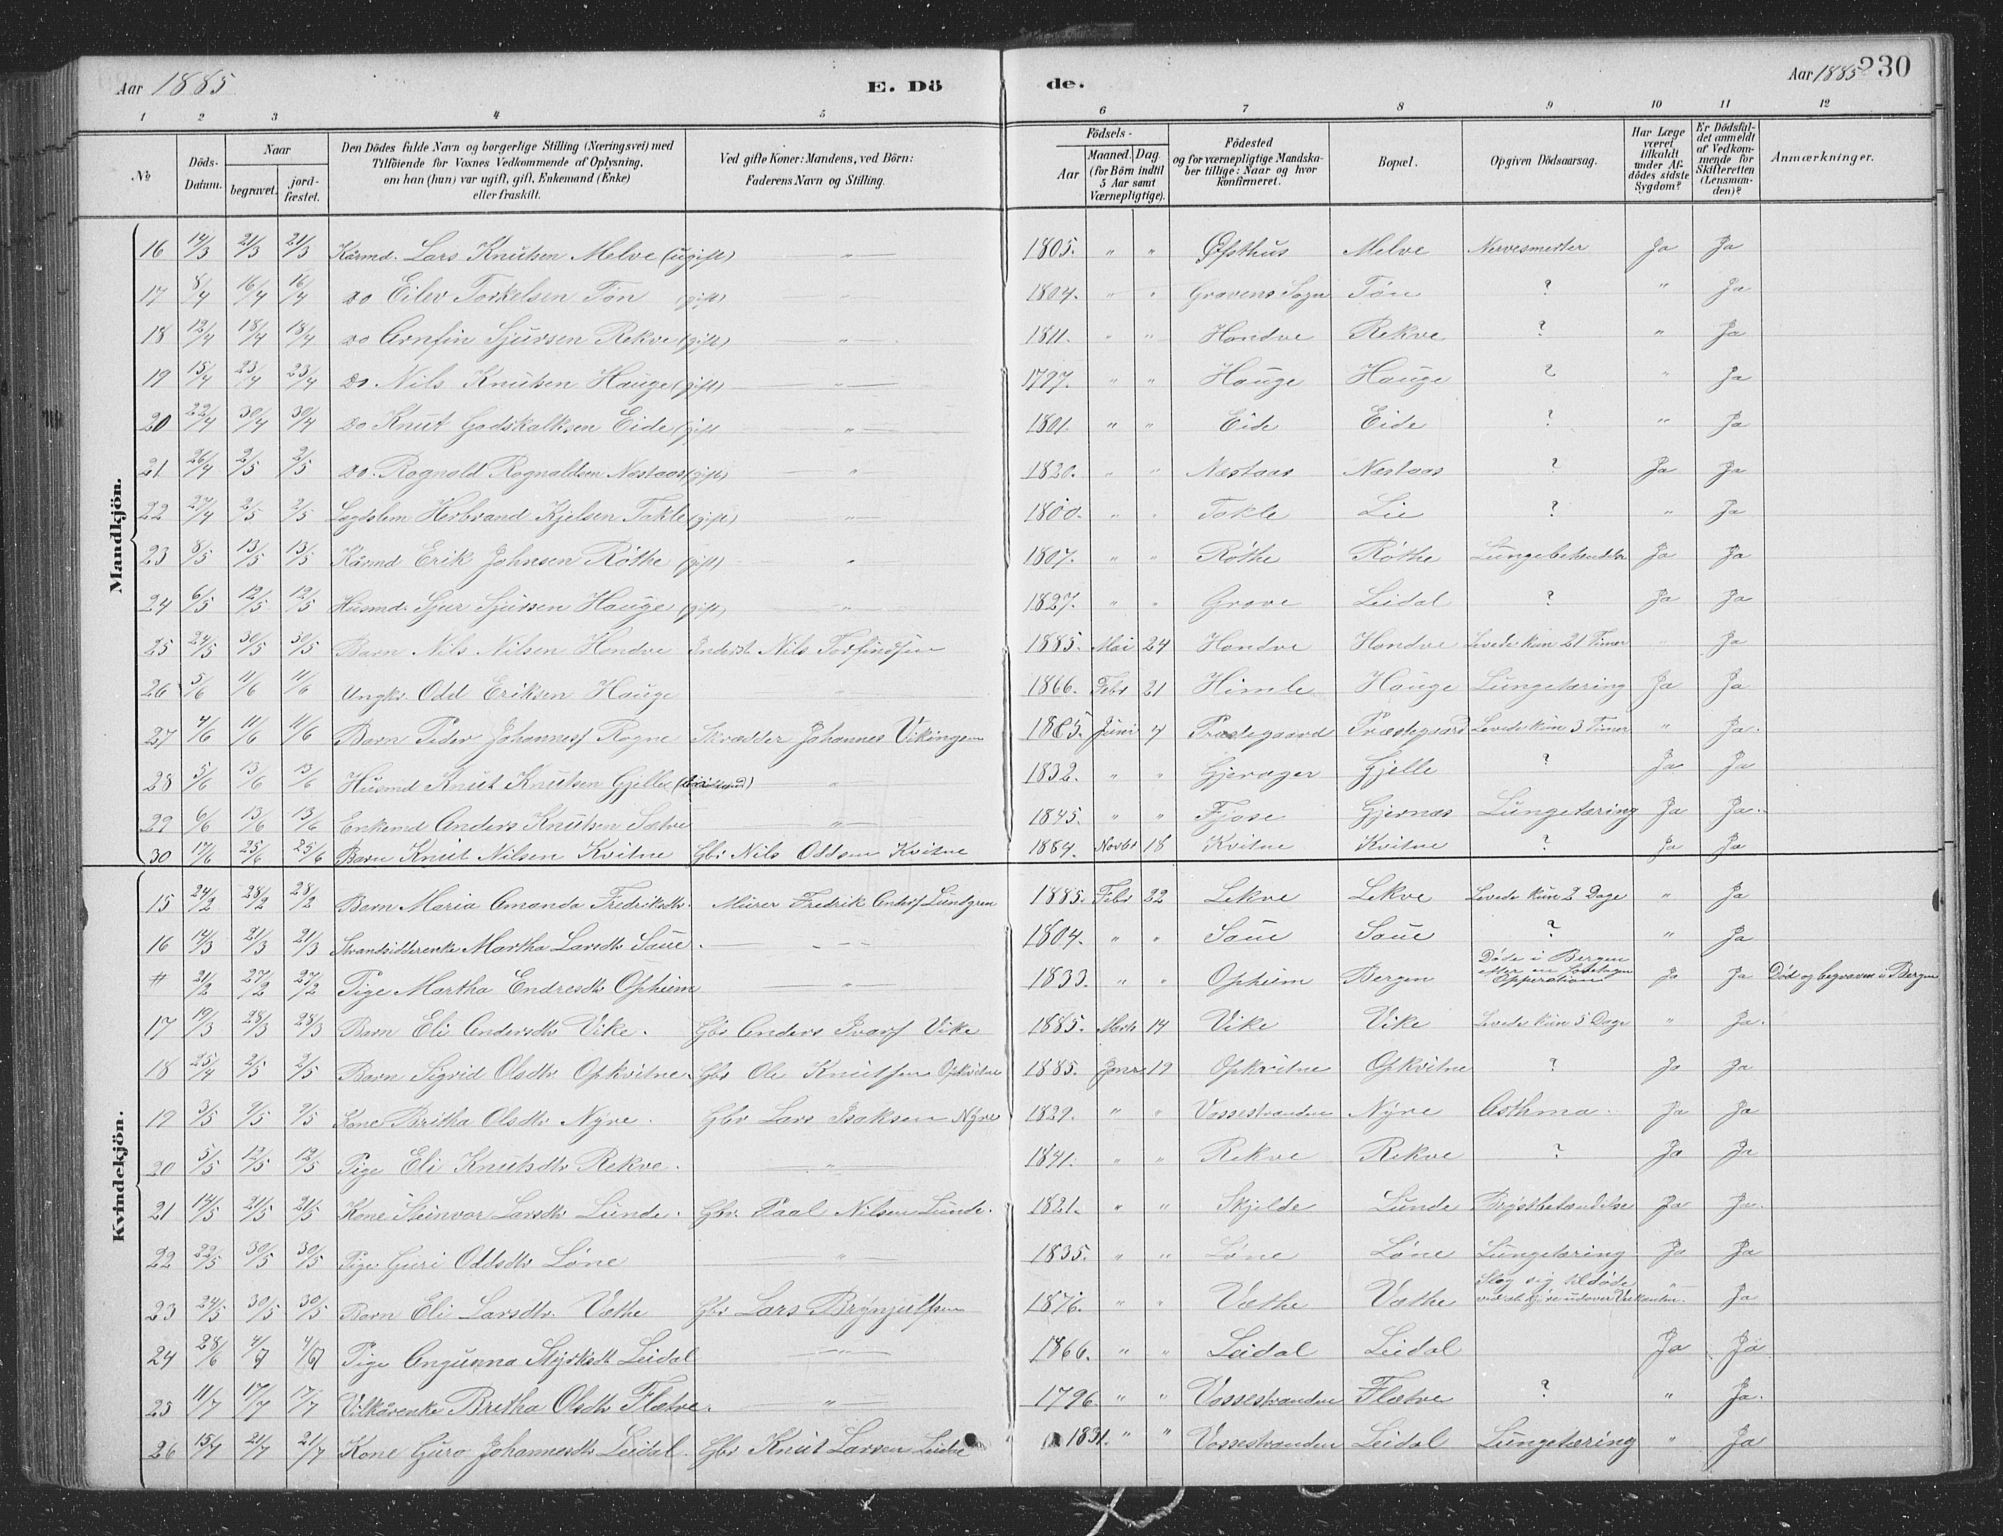 Aar 1885
E. Dö
de.
Aar 1885
230
1 2 3 4 5 6 7 8 9 10 11 12
№
Döds-Datum.
Naar
begravet.
jord-fæstet.
Den Dödes fulde Navn og borgerlige Stilling (Næringsvei) med
Tilföiende for Voxnes Vedkommende af Oplysning,
om han (hun) var ugift, gift, Enkemand (Enke)
eller fraskilt.
Ved gifte Koner: Mandens, ved Börn:
Faderens Navn og Stilling.
Födsels-
Aar
Maaned. Dag.
(for Börn indtil
5 Aar samt
Værnepligtige).
Födested
og for værnepligtige Mandska-
ber tillige: Naar og hvor
konfirmeret.
Bopæl.
Opgiven Dödsaarsag.
Har Læge
været
tilkaldt
under Af-
dödes sidste
Sygdom?
Er Dödsfal-
det anmeldt
af Vedkom-
mende for
Skifteretten
(Lensman-
den)?
Anmærkninger.
Mandkjön.
16 14/3 21/3 21/3 Kårmd. Lars Knutsen Melve (ugift) " 1805. " " Øfsthus Melve Ja Ja
17 8/4 16/4 16/4 do Eilev Torkelsen Tön (gift) " 1804. " " Gravens Sogn Tön ? " Ja
18 12/4 18/4 18/4 do Arnfin Sjursen Rekve (gift) " 1811. " " Hondve Rekve ? " Ja
19 15/4 23/4 23/4 do. Nils Knutsen Hauge (gift) " 1797. " " Hauge Hauge ? " Ja
20 22/4 30/4 30/4 do Knut Godskalksen Eide (gift) " 1801. " " Eide Eide ? " Ja
21 26/4 2/5 2/5 do. Rognald Rognaldsen Næstaas (gift) " 1820. " " Næstaas Næstaas ? Ja Ja
22 27/4 2/5 2/5 Lægdslem Herbrand Kjelsen Takle (gift) " 1800. " " Takle Lie ? " Ja
23 8/5 13/5 13/5 Kårmd Erik Johnsen Röthe (gift) " 1807. " " Röthe Röthe Ja Ja
24 6/5 12/5 12/5 Husmd. Sjur Sjursen Hauge (gift) " 1827. " " Grove Leidal ? Ja Ja
25 24/5 30/5 30/5 Barn Nils Nilsen Hondve Inderst Nils Torfindsen 1885. Mai 24 Hondve Hondve Levede kun 21 Timer " Ja
26 5/6 11/6 11/6 Ungkr. Odd Eriksen Hauge 1866. Febr 21 Himle Hauge Lungetæring Ja Ja
27 4/6 11/6 11/6 Barn Peder Johannesf Rogne Skrædder Johannes Vikingsen 1885. Juni 4 Præstegaard Præstegaard Levede kun 3 Timer " Ja.
28 5/6 13/6 13/6 Husmd Knut Knutsen Gjelle " 1832. " " Gjerager Gjelle ? Ja Ja
29 6/6 13/6 13/6 Enkemd Anders Knutsen Sætve " 1845. " " Fjose Gjernæs Lungetæring Ja Ja.
30 17/6 25/6 25/6 Barn Knut Nilsen Kvitne Gbr Nils Oddsen Kvitne 1884. Novbr 18 Kvitne Kvitne ? Ja Ja
Kvindekjön.
15 24/2 28/2 28/2 Barn Maria Amanda Fredriksdtr. Murer Fredrik Andersf Lundgren 1885. Febr 22 Lekve Lekve Levede kun 2 Dage " Ja
16 14/3 21/3 21/3 Strandsidderenke Martha Larsdtr Saue. " 1804. " " Saue Saue ? " Ja
# 21/2 27/2 27/2 Pige Martha Endresdtr Opheim " 1833. " " Opheim Bergen Döde i Bergen efter en foretagen Opperation Ja Ja Död og begraven i Bergen
17 19/3 28/3 28/3 Barn Eli Andersdtr Vike. Gbr Anders Ivarsf Vike 1885. Marts 14 Vike Vike Levede kun 5 Dage " Ja.
18 25/4 2/5 2/5 Barn Sigrid Olsdtr Opkvitne. Gbr Ole Knutsen Opkvitne 1885. Janr 19 Opkvitne Opkvitne ? Ja Ja
19 3/5 9/5 9/5 Kone Britha Olsdtr Nyre. Gbr Lars Isaksen Nyre 1829. " " Vossestranden Nyre Asthma. Ja Ja
20 5/5 12/5 12/5 Pige Eli Knutsdtr Rekve. " 1841. " " Rekve Rekve ? Ja Ja
21 14/5 21/5 21/5 Kone Steinvor Larsdtr Lunde. Gbr. Paal Nilsen Lunde. 1821. " " Skjelde Lunde Brystbetændelse Ja Ja.
22 22/5 30/5 30/5 Pige Guri Oddsdtr Löne " 1835. " " Löne Löne Lungetæring Ja Ja
23 24/5 30/5 30/5 Barn Eli Larsdtr Væthe Gbr Lars Brynjulfsen 1876. " " Væthe Væthe Slog sig til döde ved at kjöre udover " Ja
24 28/6 4/7 4/7 Pige Angunna Styrksdtr Leidal " 1866. " " Leidal Leidal Ja Ja
25 11/7 17/7 17/7 Vilkårenke Britha Olsdtr Flætve. " 1796. " " Vossestranden Flætve ? " Ja.
26 15/7 21/7 21/7 Kone Guro Johannesdtr Leidal. Gbr Knut Larsen 1831. " " Vossestranden Leidal Lungetæring " Ja